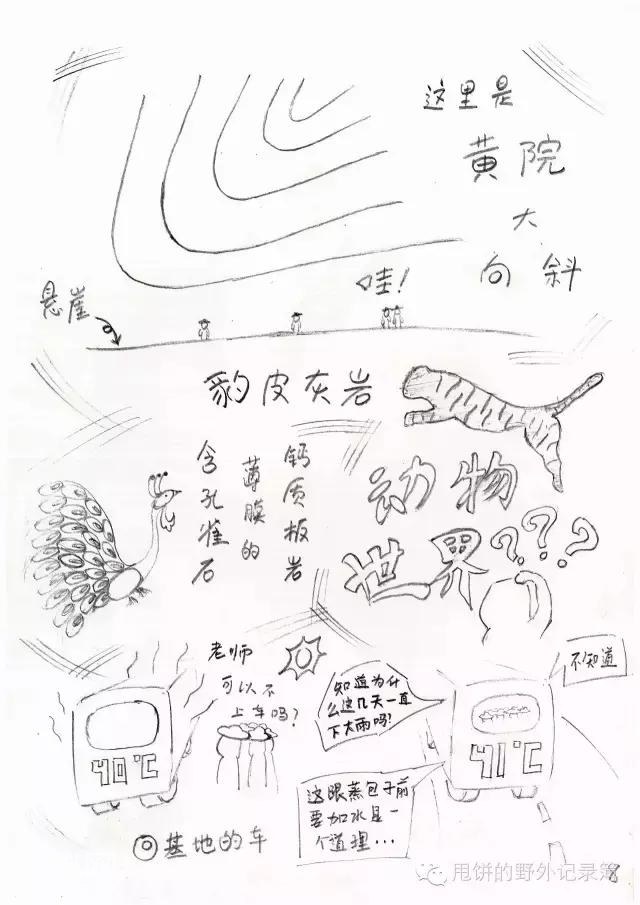 这里是
黄院
大
向斜
悬崖
哇!
豹皮灰岩
钙质板岩
薄膜的
含孔雀石
动物
世界???
老师
可以不
上车吗?
40℃
知道为什
么这几天一直
下大雨吗?
不知道
41℃
这跟蒸包子前
要加水是一
个道理...
基地的车
甩饼的野外记录簿
8